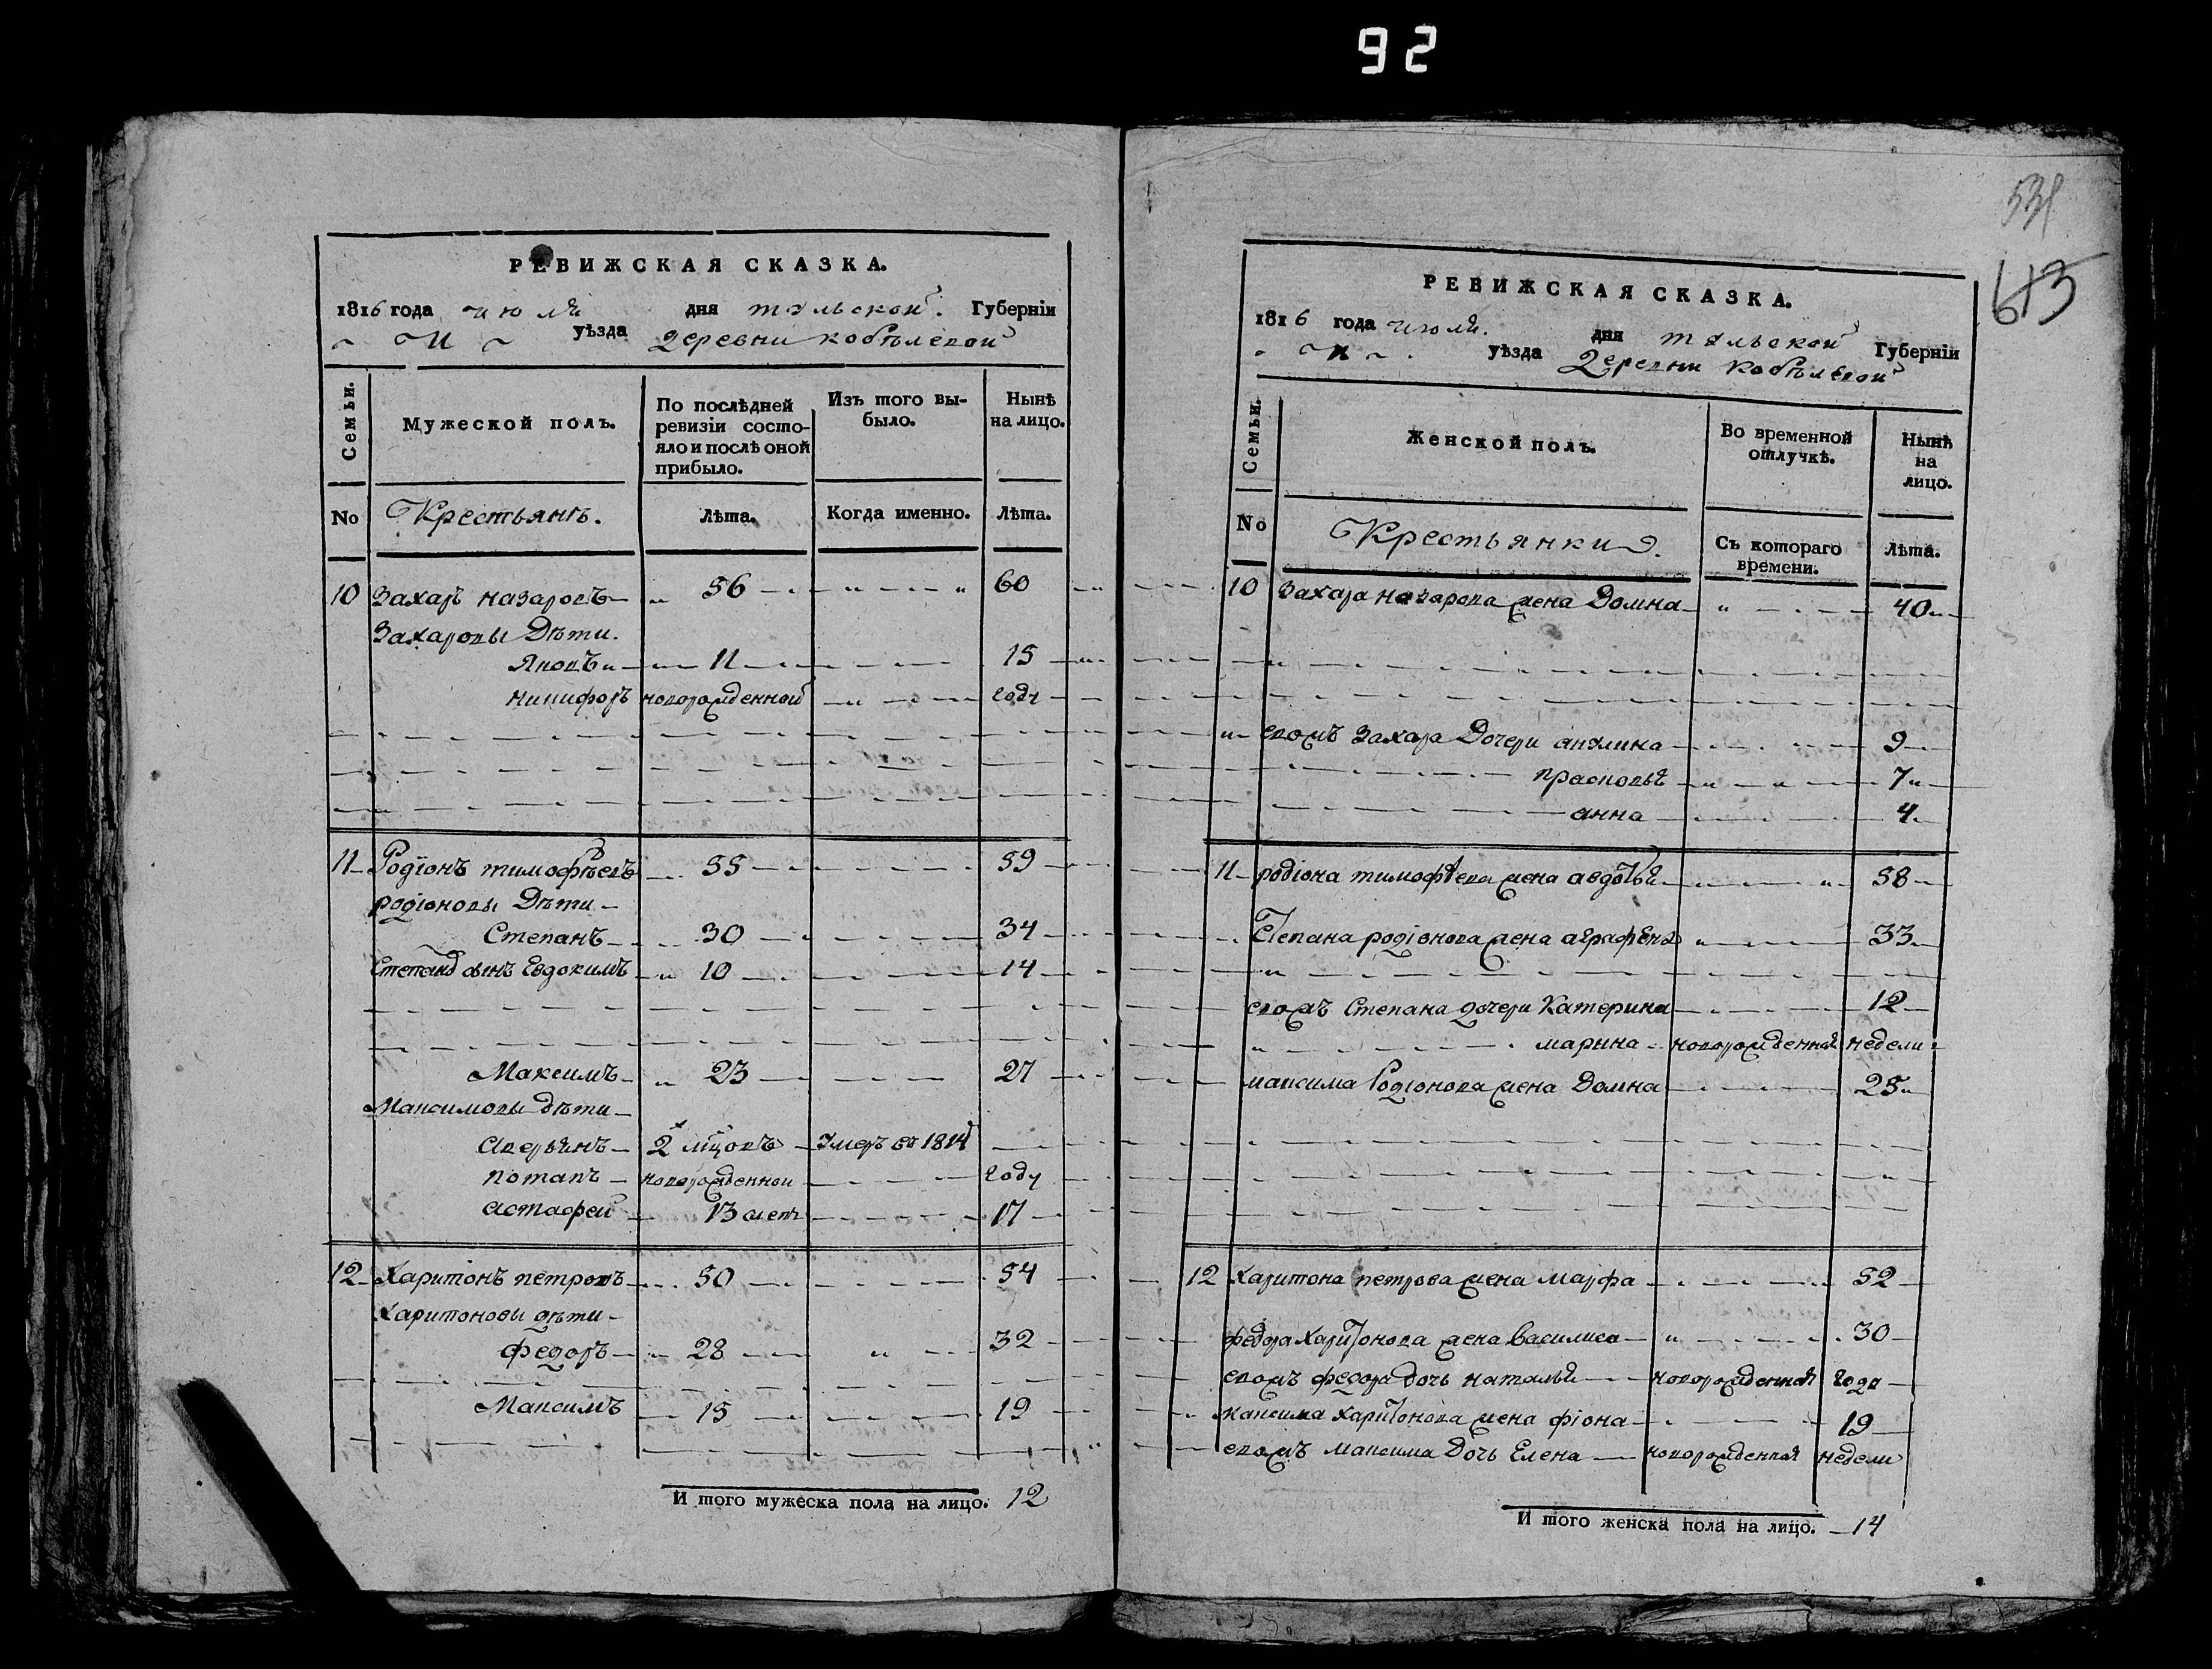 92
РЕВИЖСКАЯ СКАЗКА.
1816 года июля дня тульской Губерніи
уѣзда деревни кобѣлевой
Семьи.
Мужеской полъ.
По послѣдней ревизіи состояло и послѣ оной прибыло.
Изъ того выбыло.
Нынѣ на лицо.
No
Крестьянъ.
лѣта.
Когда именно.
лѣта.
10 Захаръ назаровъ 56 60
Захаровы Дѣти.
Яковъ 11 15
никифоръ новорожденной году
11 Родіонъ тимофѣевъ 55 59
родіоновы Дѣти
Степанъ 30 34
Степана сынъ Евдокимъ 10 14
Максимъ 23 27
Максимовы дѣти
Аверьянъ 2 мцовъ Умеръ въ 1814
потапъ новорожденной году
астафей 13 летъ 17
12 Харитонъ петровъ 50 54
Харитоновы дѣти
федоръ 28 32
Максимъ 15 19
И того мужеска пола на лицо. 12
531
613
РЕВИЖСКАЯ СКАЗКА.
1816 года июля. дня тульской Губерніи
уѣзда деревни кобѣлевой
Семьи.
Женской полъ.
Во временной отлучкѣ.
Нынѣ на лицо.
No
Крестьянки
Съ котораго времени.
лѣта.
10 Захара назарова жена Домна 40
евожъ Захара Дочери акулина 9
прасковья 7
анна 4
11 родіона тимофѣева жена авдотья 58
Степана родіонова жена аграфена 33
евожъ Степана дочери Катерина 12
марина новорожденная недели
максима Родіонова жена Домна 25
12 Харитона петрова жена марфа 52
федора Харитонова жена василиса 30
евожъ федора дочь наталья новорожденная года
максима харитонова жена фіона 19
евожъ максима Дочь Елена новорожденная недели
И того женска пола на лицо. 14